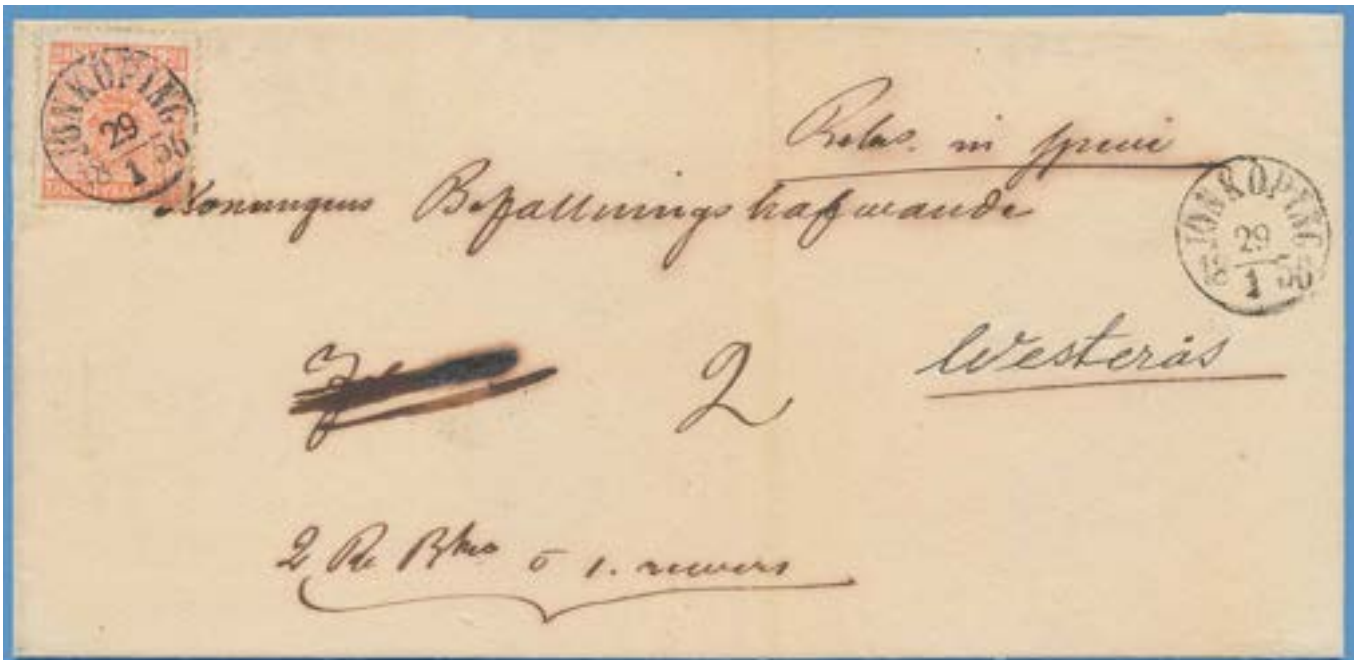 JÖNKÖPING
29
1
18 56
Konungens Befallningshafwande
JÖNKÖPING
29
1
18 56
Westerås
2
2 Rd Bko o 1. revers